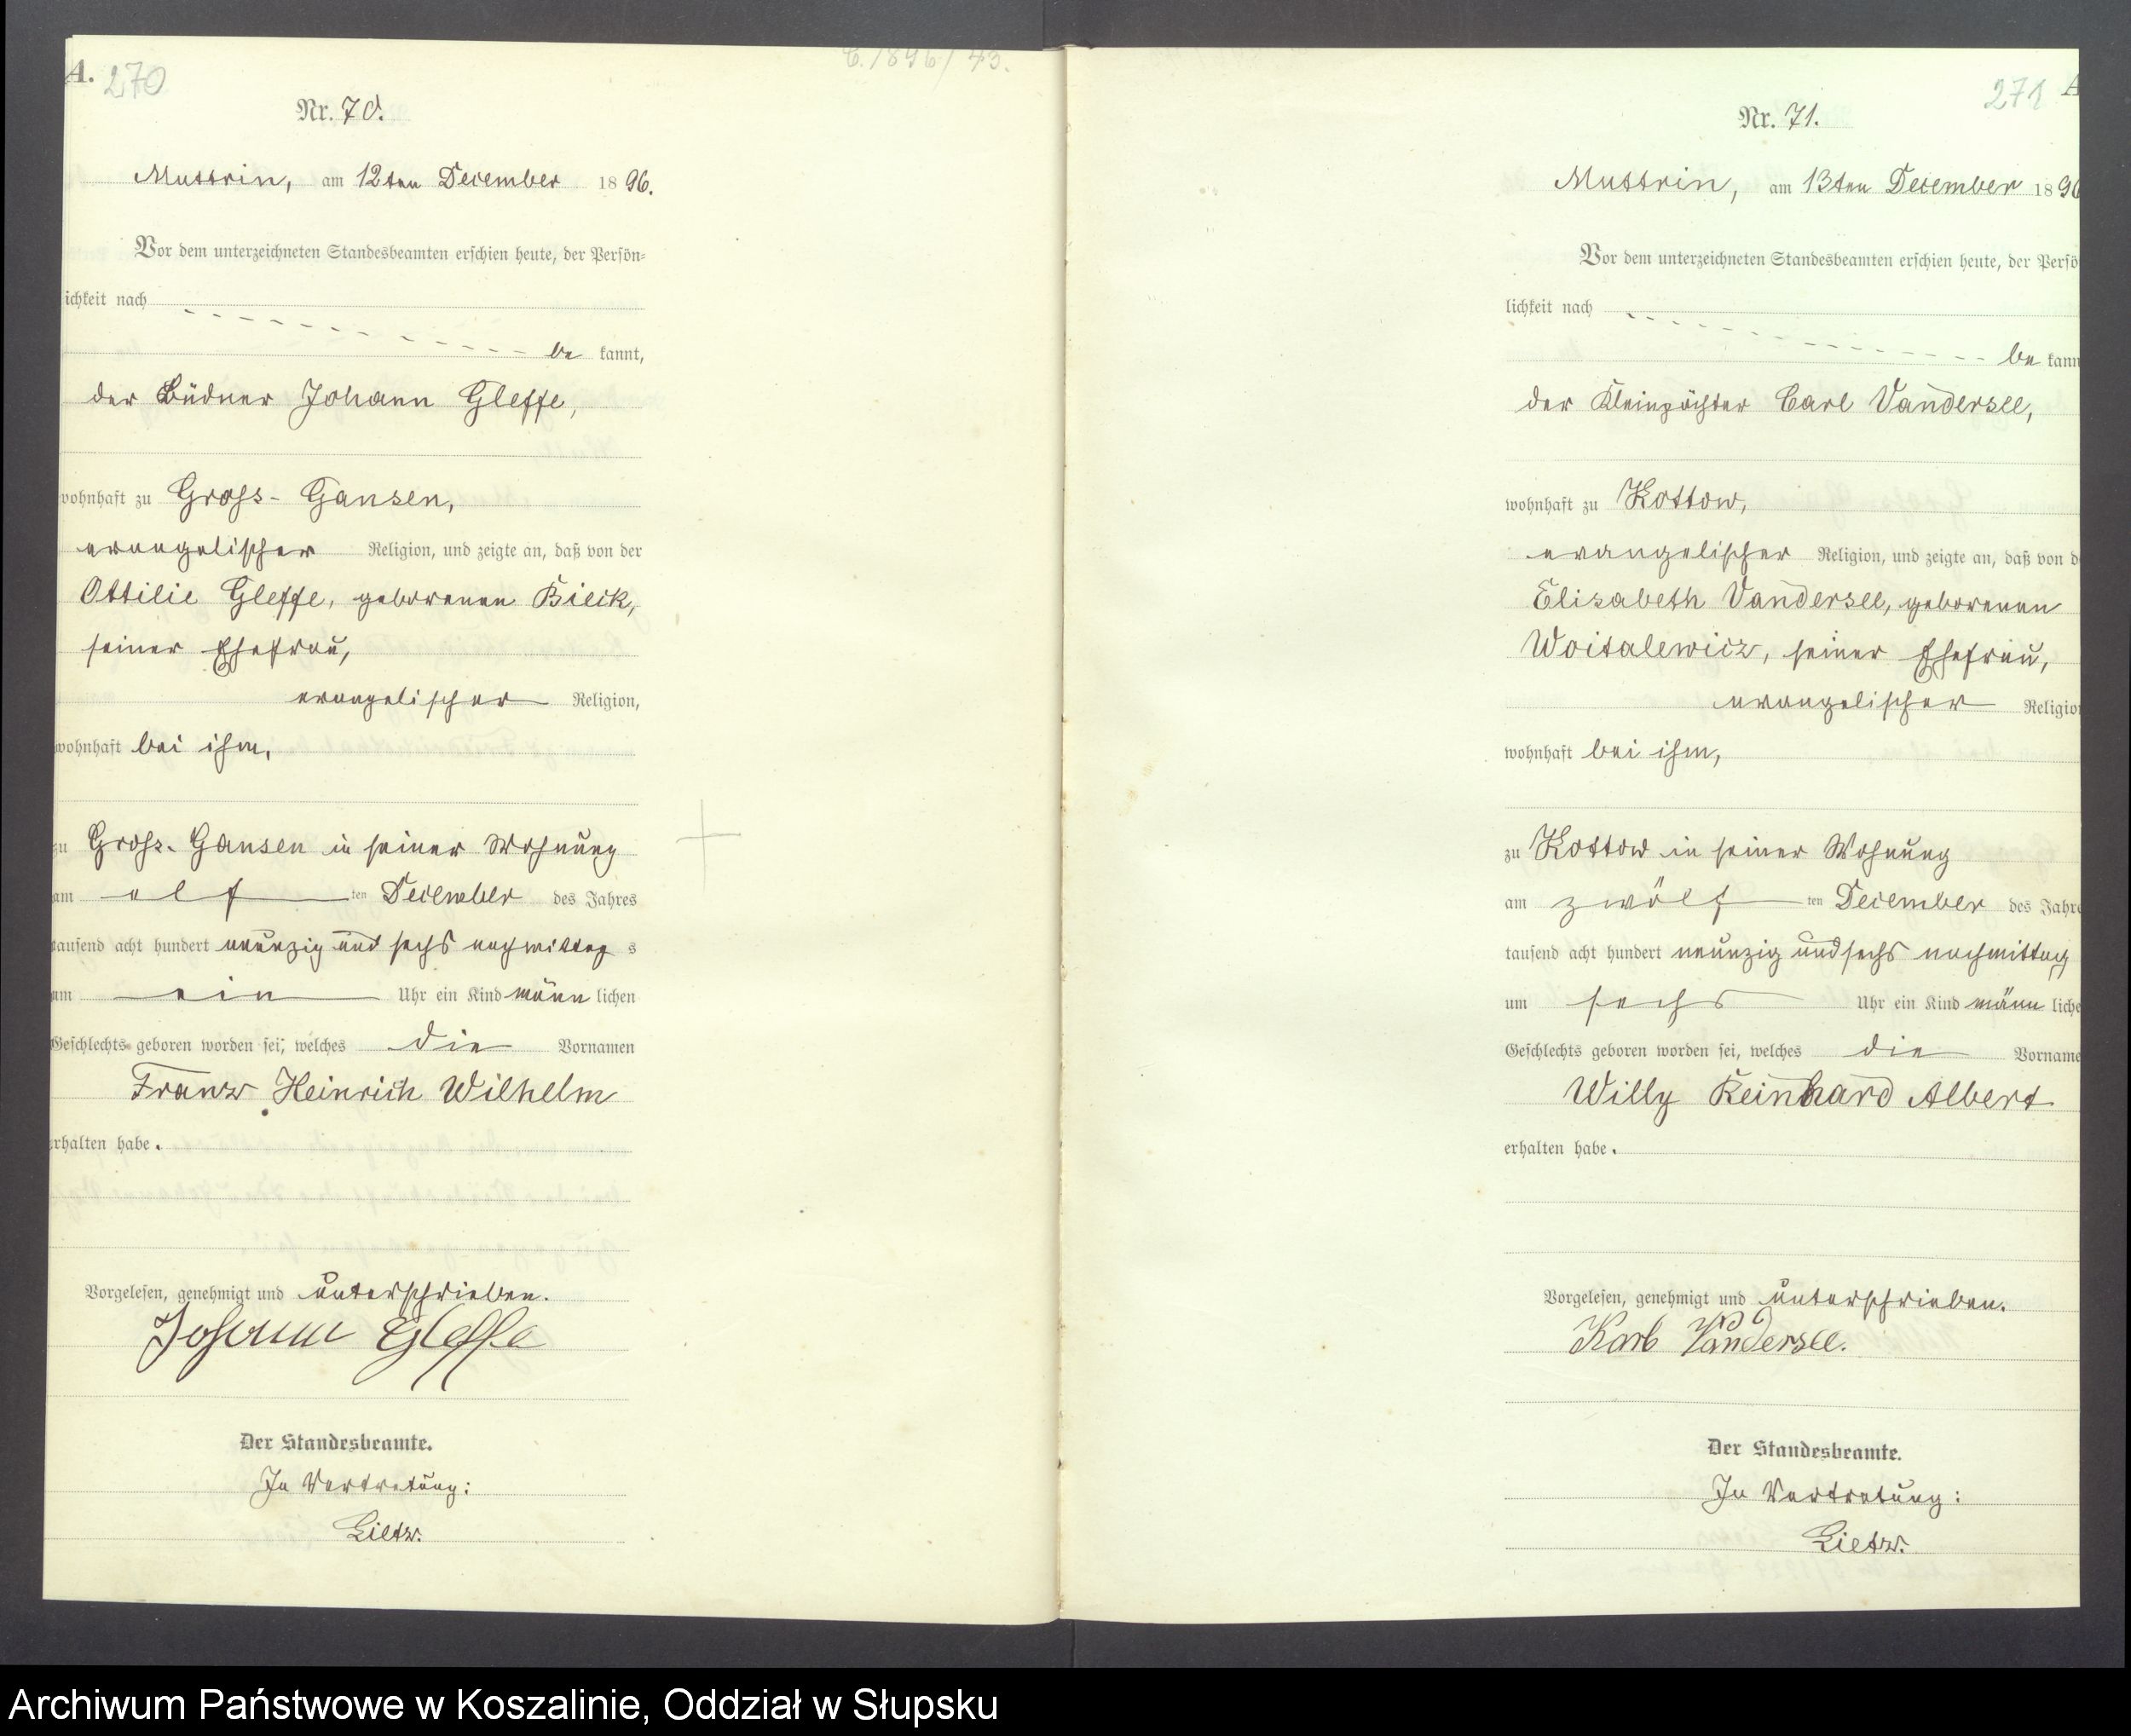 A. 270
C. 1896/43.
Nr. 70.
Muttrin, am 12ten December 1896.
Vor dem unterzeichneten Standesbeamten erschien heute, der Persön-
ichkeit nach
be kannt,
der Büdner Johann Gleffe,
wohnhaft zu Gross-Gansen,
evangelischer Religion, und zeigte an, daß von der
Ottilie Gleffe, geborenen Bieck,
seiner Ehefrau,
evangelischer Religion,
wohnhaft bei ihm,
zu Gross-Gansen in seiner Wohnung
am elf ten December des Jahres
tausend acht hundert neunzig und sechs nachmittag s
um ein Uhr ein Kind männ lichen
Geschlechts geboren worden sei, welches die Vornamen
Franz Heinrich Wilhelm
erhalten habe.
Vorgelesen, genehmigt und unterschrieben.
Johann Gleffe
Der Standesbeamte.
In Vertretung:
Lietz.
271 A
Nr. 71.
Muttrin, am 13ten December 1896
Vor dem unterzeichneten Standesbeamten erschien heute, der Persö
lichkeit nach
be kann
der Kleinpächter Carl Vandersee,
wohnhaft zu Kottow,
evangelischer Religion, und zeigte an, daß von d
Elisabeth Vandersee, geborenen
Woitalewicz, seiner Ehefrau,
evangelischer Religion
wohnhaft bei ihm,
zu Kottow in seiner Wohnung
am zwölf ten December des Jahre
tausend acht hundert neunzig und sechs nachmittag
um sechs Uhr ein Kind männ liche
Geschlechts geboren worden sei, welches die Vorname
Willy Reinhard Albert
erhalten habe.
Vorgelesen, genehmigt und unterschrieben.
Karl Vandersee.
Der Standesbeamte.
In Vertretung:
Lietz.
Archiwum Państwowe w Koszalinie, Oddział w Słupsku